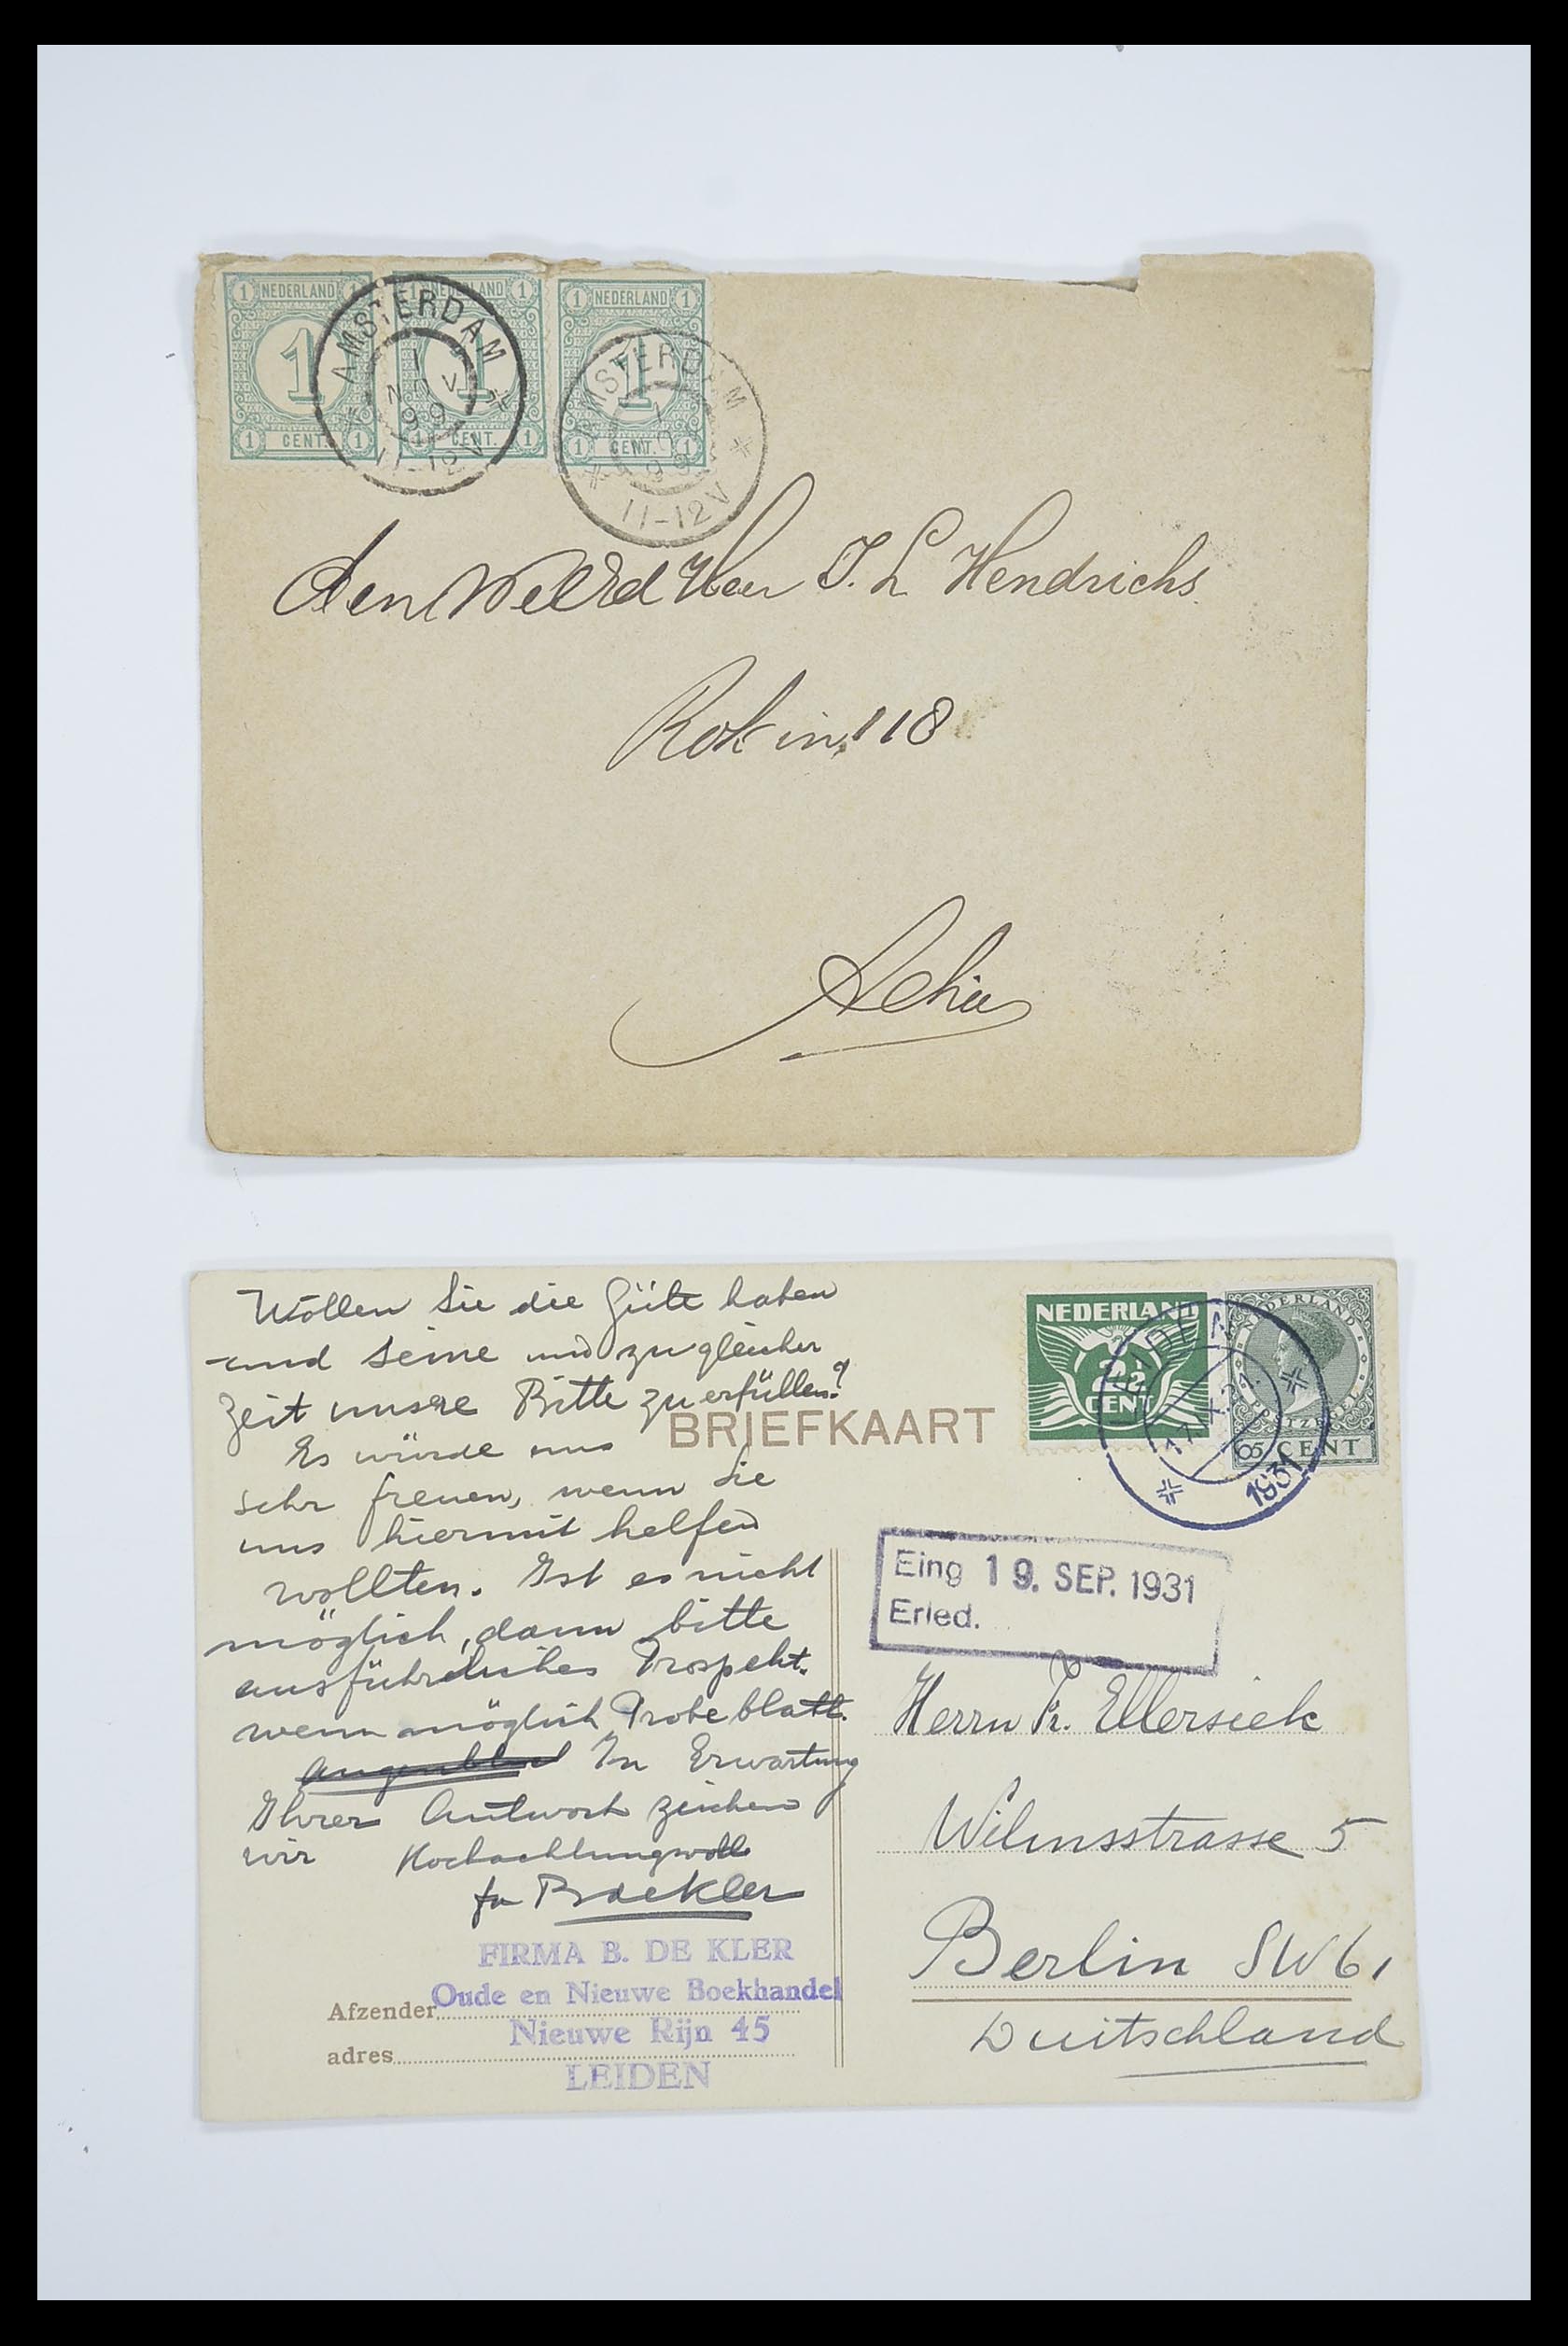 1 NEDERLAND 1
1 NEDERLAND 1
1 NEDERLAND 1
1
1
1
1 CENT. 1
1 CENT. 1
1 CENT. 1
AMSTERDAM
1
NOV
99
11-12V
AMSTERDAM
1
99
11-12V
den Weled Heer J. L Hendrichs
Rokin 118
Alhier
Wollen Sie die Güte haben
und seine und zu gleicher
Zeit unsere Bitte zu erfüllen?
Es würde uns
sehr freuen, wenn Sie
uns hiermit helfen
wollten. Ist es nicht
möglich, dann bitte
ausführliches Prospekt.
wenn möglich Probeblatt.
In Erwartung
Ihrer Antwort zeichen
wir Hochachtungsvoll
fa B de Kler
FIRMA B. DE KLER
Oude en Nieuwe Boekhandel
Nieuwe Rijn 45
LEIDEN
Afzender
adres
BRIEFKAART
NEDERLAND
2½
CENT
NEDERLAND
5 CENT
LEIDEN
17.IX.31.
1931
Eing 19. SEP. 1931
Erled.
Herrn Fr. Ellersiek
Wilmsstrasse 5
Berlin SW 61
Duitschland